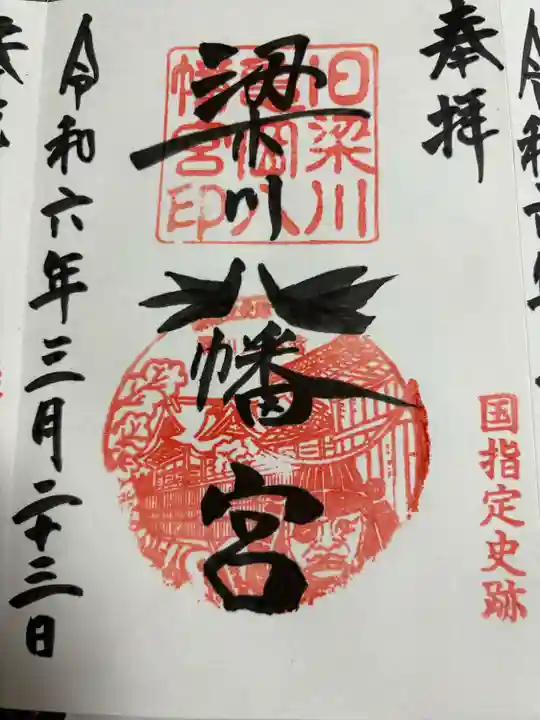 奉拝
国指定史跡
旧梁川
亀岡八
幡宮印
梁川八幡宮
令和六年三月二十三日